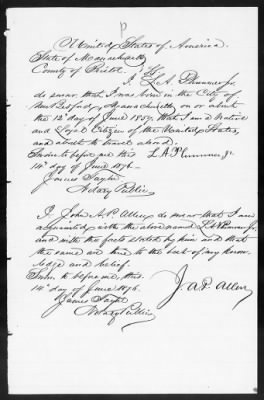 United States of America.
State of Massachusetts
County of Bristol } ss
I L. A. Plummer Jr.
do swear that I was born in the City of
New Bedford, Massachusetts, on or about
the 12th day of June 1857, that I am a Native
and Loyal Citizen of the United States,
and about to travel abroad.
Sworn to before me this L. A. Plummer Jr.
14th day of June 1876.
James Taylor
Notary Public
I, John A. P. Allen, do swear that I am
acquainted with the above named L. A. Plummer Jr.
and with the facts stated by him and that
the same are true to the best of my know-
ledge and belief.
Sworn to before me, this
14th day of June 1876. J. A. P. Allen
James Taylor
Notary Public